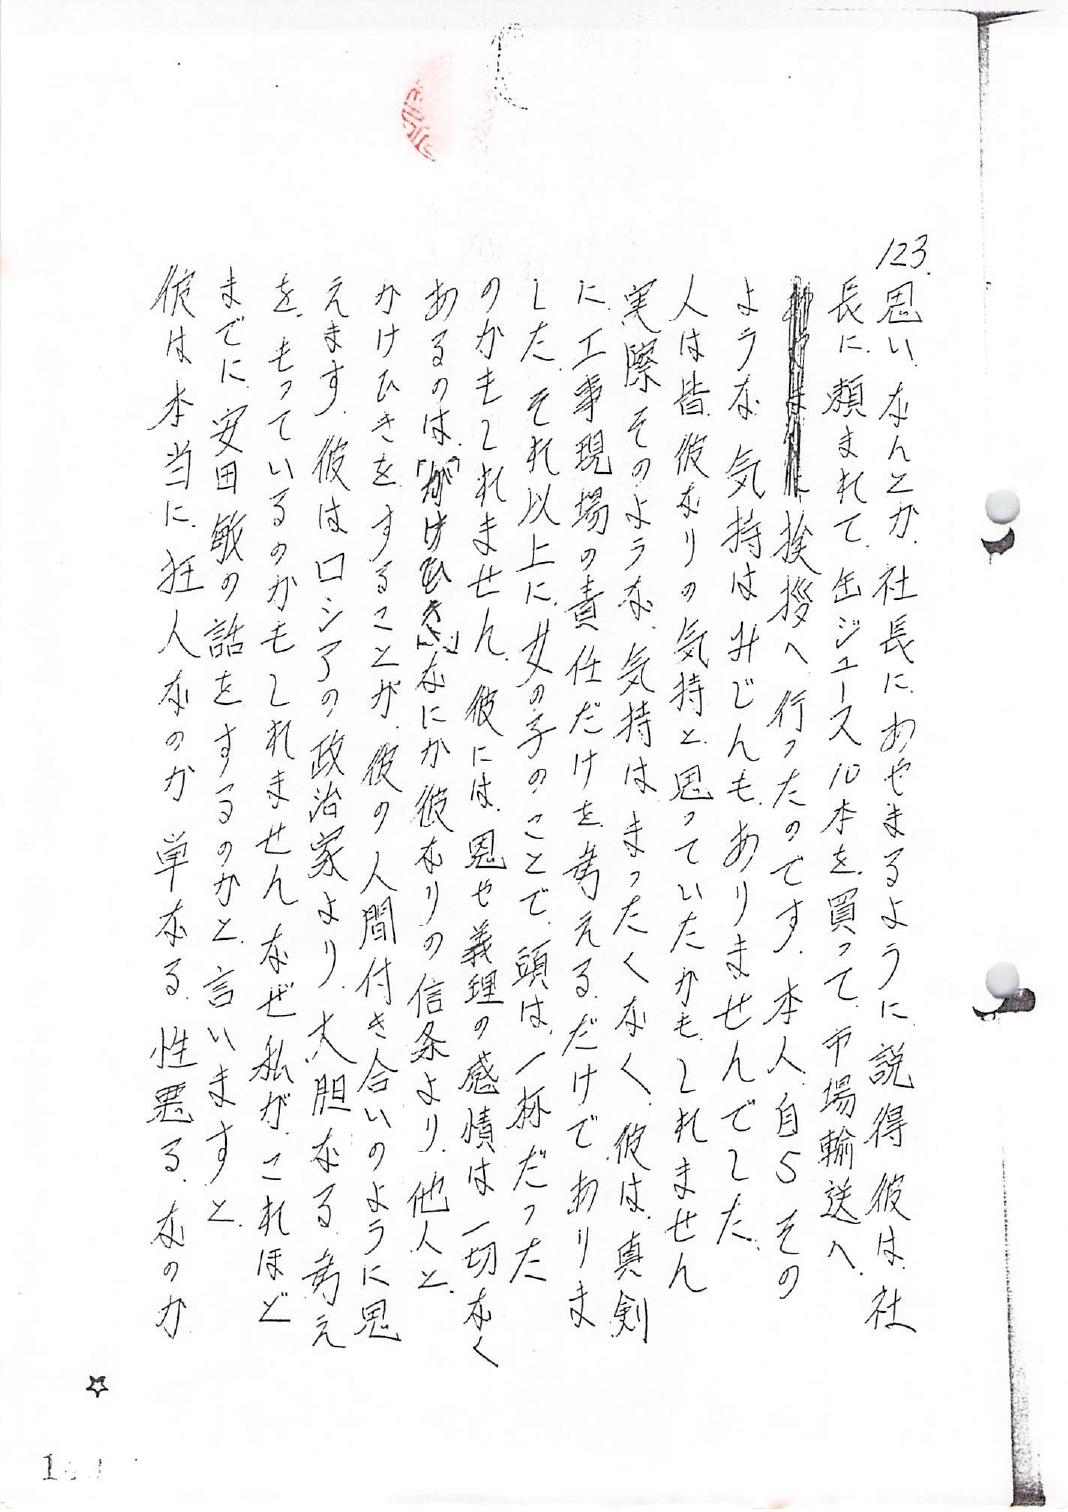 123.
思い、なんとか、社長に、あやまるように、説得、彼は、社
長に、頼まれて、缶ジュース10本を、買って、市場輸送へ、
挨拶へ、行ったのです、本人、自ら、その
ような、気持は、みじんも、ありませんでした、
人は皆、彼なりの気持と、思っていたかも、しれません
実際、そのような、気持は、まったくなく、彼は、真剣
に、工事現場の責任だけを、考える、だけでありま
した、それ以上に、女の子のことで、頭は、一杯だった
のかもしれません、彼には、恩や義理の感情は一切なく
あるのは、「かけひき」なにか彼なりの信条より、他人と、
かけひきをすることが、彼の人間付き合いのように思
えます、彼はロシアの政治家より、大胆なる、考え
を、もっているのかもしれません、なぜ私が、これほど
までに、安田敏の話をするのかと、言いますと、
彼は本当に、狂人なのか、単なる、性悪る、なのか